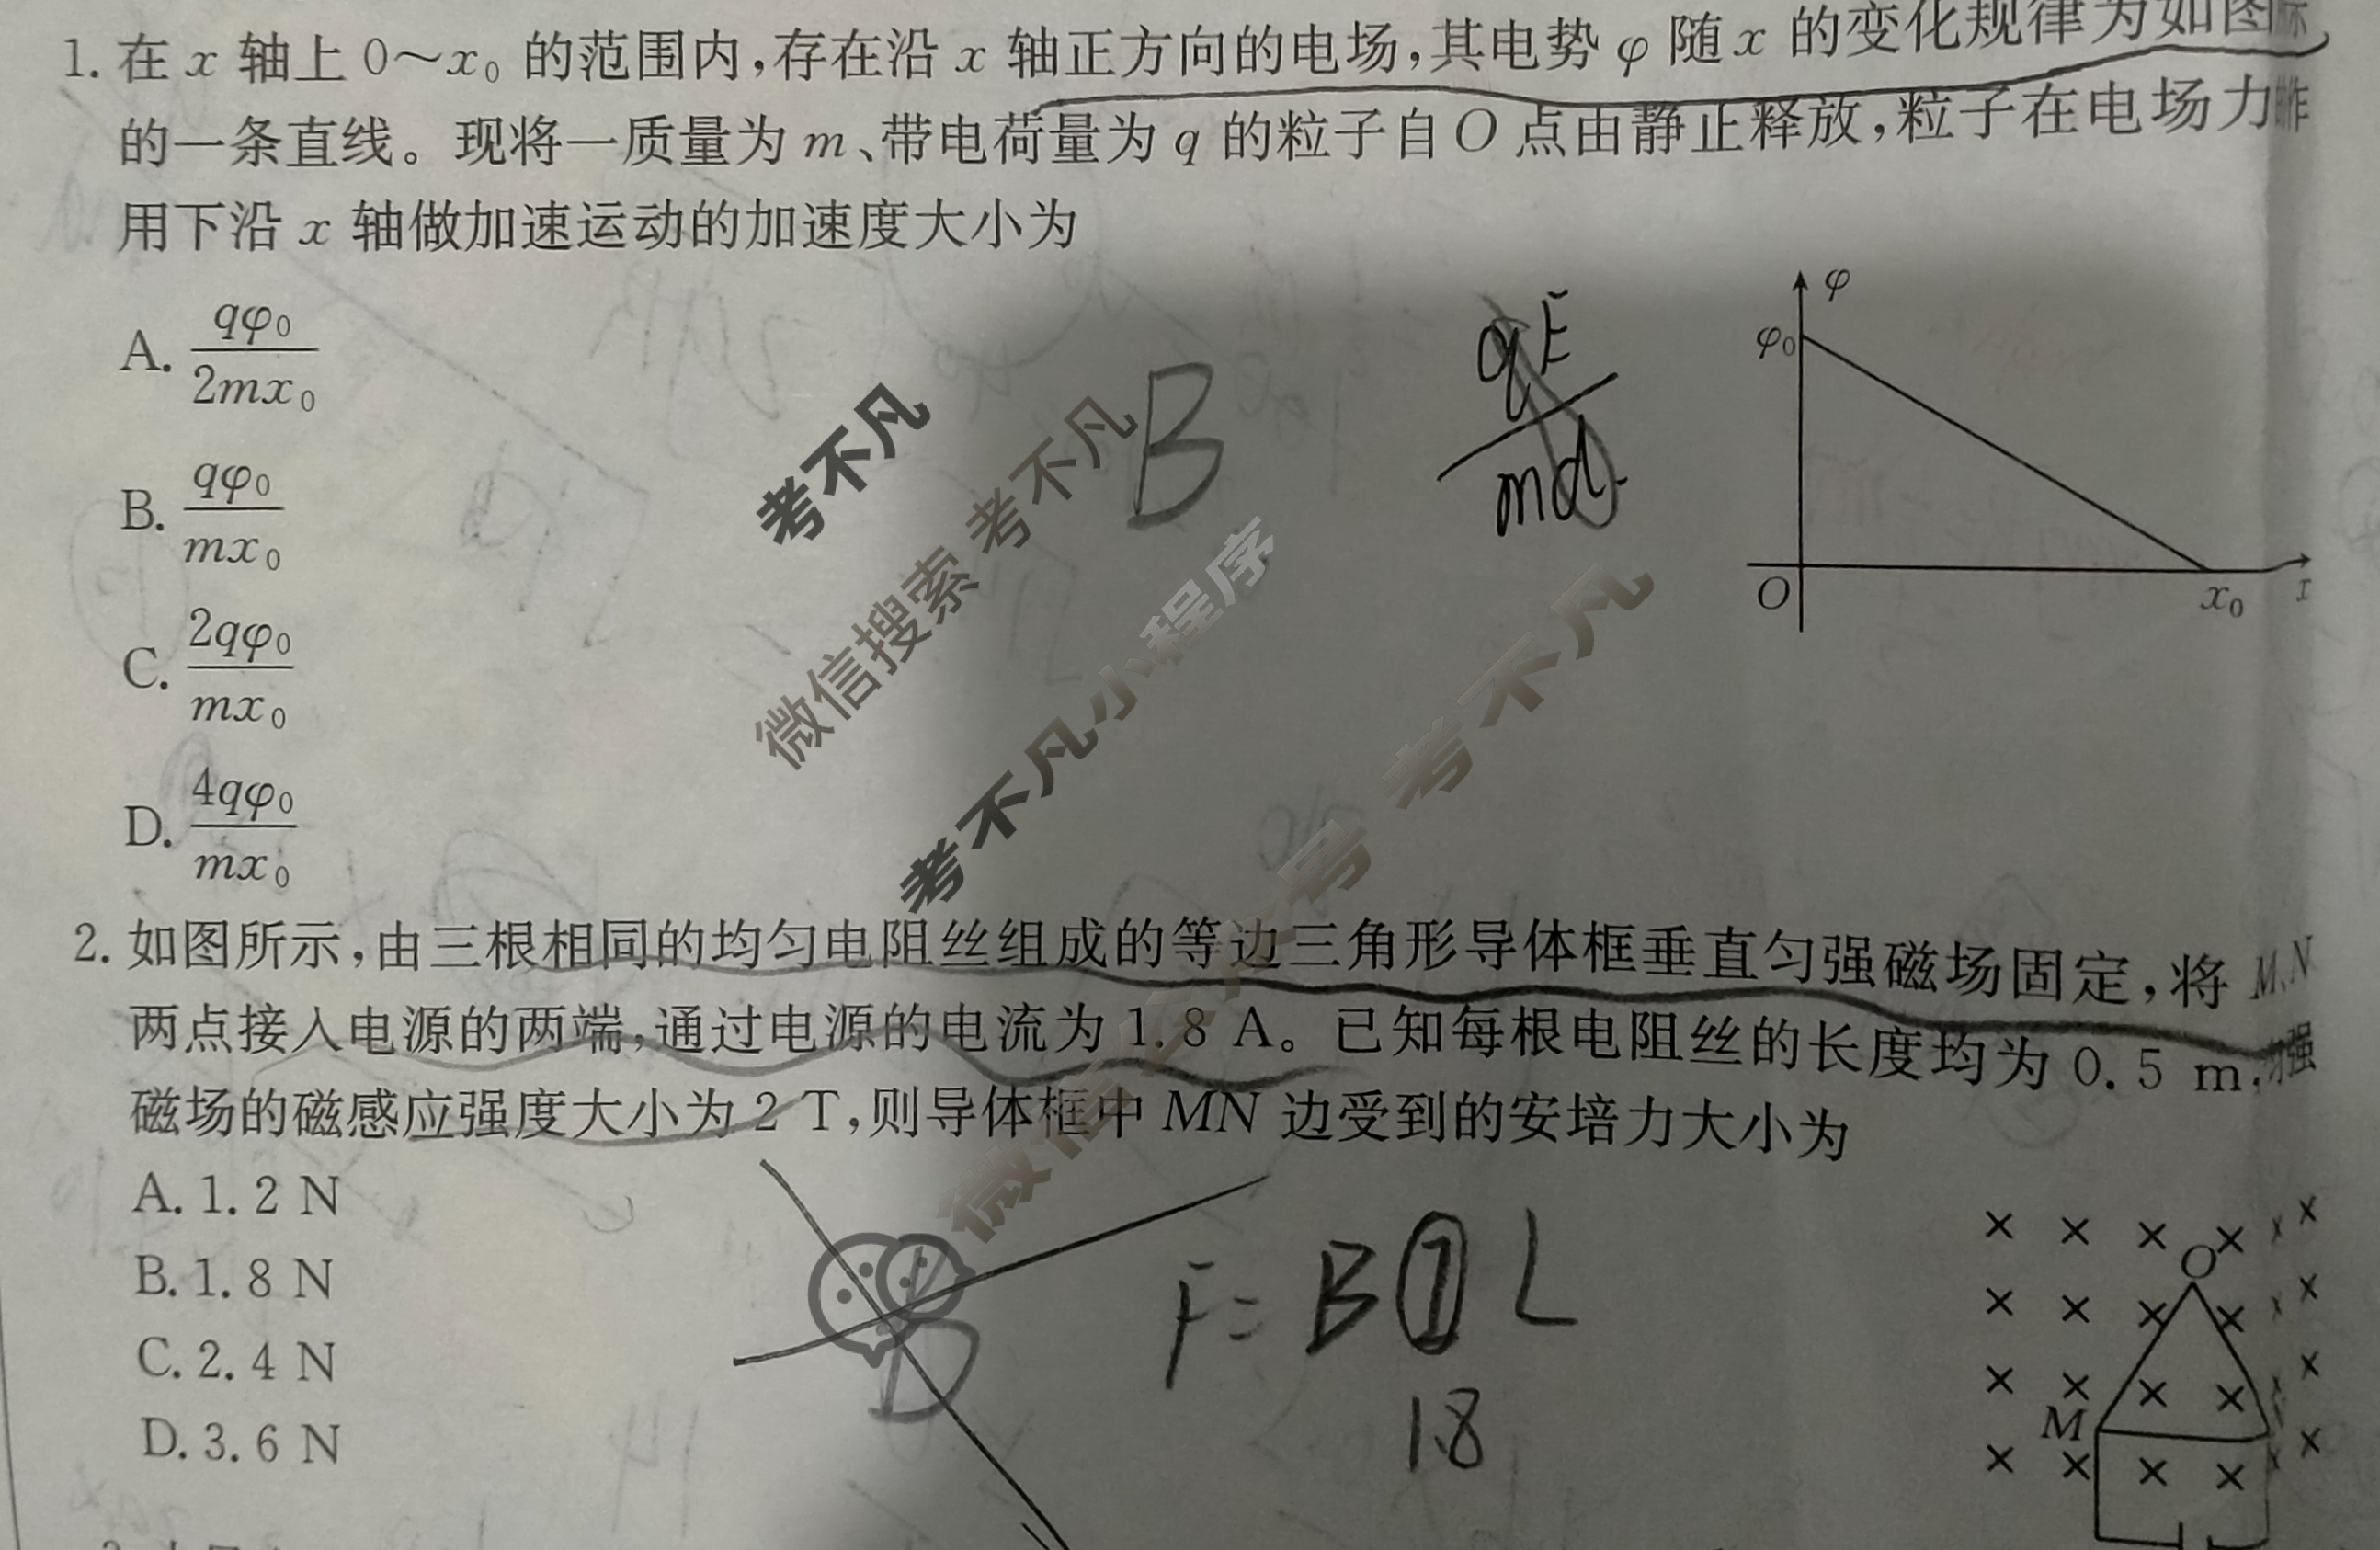 1. 在 x 轴上 0～x₀ 的范围内,存在沿 x 轴正方向的电场,其电势 φ 随 x 的变化规律为如图
的一条直线。现将一质量为 m、带电荷量为 q 的粒子自 O 点由静止释放,粒子在电场力作
用下沿 x 轴做加速运动的加速度大小为
A. qφ₀/2mx₀
B. qφ₀/mx₀
C. 2qφ₀/mx₀
D. 4qφ₀/mx₀
B
qE/md
φ
φ₀
O
x₀
x
考不凡
微信搜索 考不凡
考不凡小程序
微信公众号 考不凡
2. 如图所示,由三根相同的均匀电阻丝组成的等边三角形导体框垂直匀强磁场固定,将 M、N
两点接入电源的两端,通过电源的电流为 1.8 A。已知每根电阻丝的长度均为 0.5 m,匀强
磁场的磁感应强度大小为 2 T,则导体框中 MN 边受到的安培力大小为
A. 1.2 N
B. 1.8 N
C. 2.4 N
D. 3.6 N
F=BIL
1.8
× × × × × ×
O
× × × × × ×
× × × × × ×
M
× × × × × ×